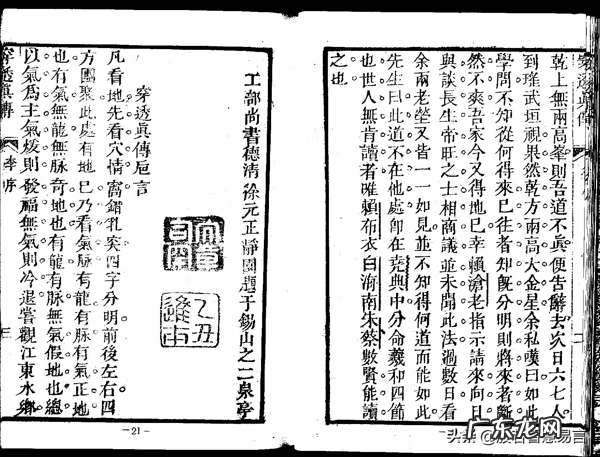 乾上無兩高峯則吾道不眞便吿辭去次日六七人
到瑤武垣視果然乾方兩高大金星余私嘆曰如此
學問不知從何得來已往者知旣分明則將來者斷
然不爽吾家今又得地已幸賴滄老指示請來向日
與談長生帝旺之士相商議並未聞此法過數日看
余兩老塋又皆一一如見並不知得何道而能如此
先生曰此道不在他處卽在堯典中分命羲和四節
也世人無肯讀者唯賴布衣白海南朱蔡數賢能讀
之也
穿透眞傳
李序
二
工部尚書德清徐元正靜園題于錫山之二泉亭
乙丑
穿透眞傳卮言
凡看地先看穴情窩鉗乳突四字分明前後左右四
方團聚此處有地巳乃看氣脉有龍有脉有氣正地
也有氣無龍無脉奇地也有龍有脉無氣假地也總
以氣爲主氣煖則發福無氣則冷退嘗觀江東水鄉
穿透眞傳
李序
三
— 21 —
头条 @般若智慧易言